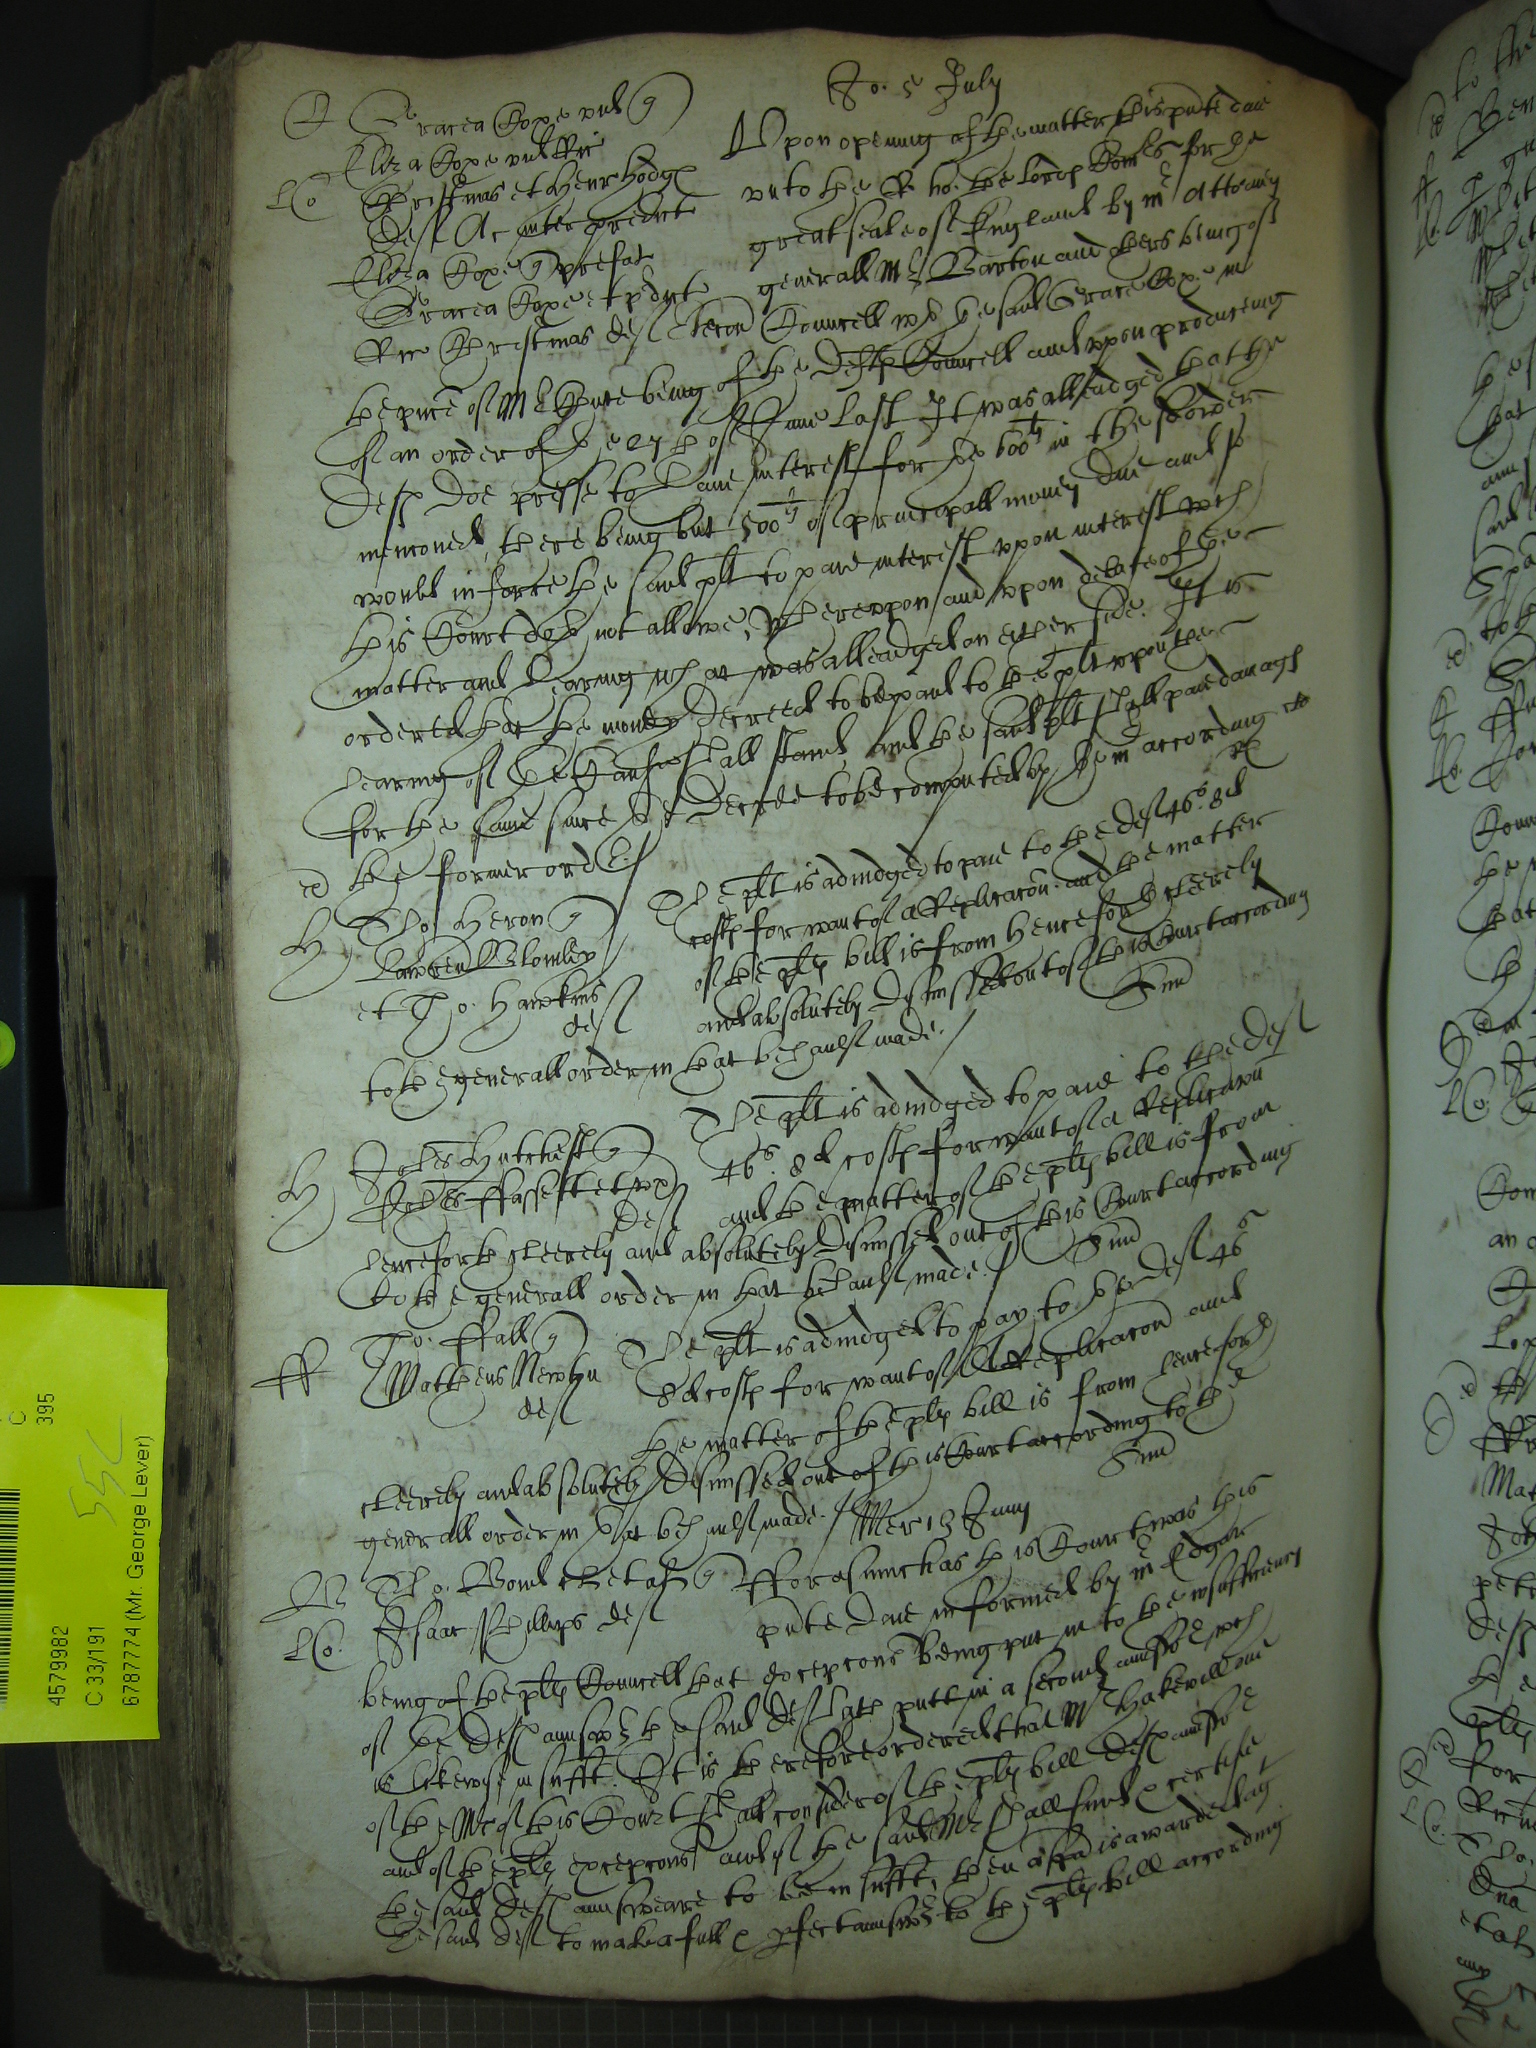 Jo. 5 July
C Gracea Cope vid q
Eliza Cope vid Ric
LCo Christmas et Henr Hodg
def Ac inter predict
Eliza Cope q prefat
Gracea Cope et pdict
Ric Christmas def
Upon opening of the matter this pnte daie
unto the R. ho. the lords Comrs for the
great seale of England by mr Attorney
generall Mr Barton and others being of
Councell wth the said Grace Cope in
the pnce of Mr Chute being of the defts Councell and upon produceing
of an order of the 27th of June last It was alleadged that the
defts doe presse to have interest for the 600li in the said order
mencioned, there being but 500li of principall money due and so
would inforce the said plt to paie interest upon interest wch
this Court doth not allowe, Whereupon and upon debate of the
matter and hearing wt was alleadged on either side. It is
ordered that the money decreed to bee paid to the plt upon the
hearing of the Cause shall stand and the said plt shall paie damages
for the same since the decree to be computed by them according to
the former order./
H Tho. Heron q
Lawren Blomley
et Tho. Hawkins
def
The plt is adiudged to paie to the def 46s. 8d
costs for want of a Replicacon. and the matter
of the plts bill is from henceforth cleerely
and absolutely dismissed out of this Court according
to the generall order in that behaulf made./
H Johes Hutchest q
Johes ffassett et ux
def
The plt is adiudged to paie to the def
46s. 8d costs for want of a Replicacon
and the matter of the plts bill is from
henceforth cleerely and absolutely dismissed out of this Court according
to the generall order in that behaulf made./
ff Tho. ffall q
Matheus Newton
def
The plt is adiudged to pay to the def 46s
8d costs for want of a Replicacon and
the matter of the plts bill is from henceforth
cleerely and absolutely dismissed out of this Court according to the
generall order in that beh aulf made./
Mer 13 Juny
B Tho. Bond et al q
LCo. Isaac Phillips def
fforasmuch as this Court was this
pnte daie informed by mr Edgar
being of the plts Councell that excepcons being put in to the insufficiency
of the defts answer the said def hath putt in a second answer wch
is likewise insufft. It is therefore ordered that Mr Hakewill one
of the Mrs of this Court shall consider of the plts bill defts answer
and of the plts excepcons and if the said Mr shall find & certifie
the said defts answeare to be insufft, then a spa is awarded agt
the said deft to make a full & pfect answer to the plts bill according
4579982
C 33/191
6787774 (Mr. George Lever)
C
395
55C